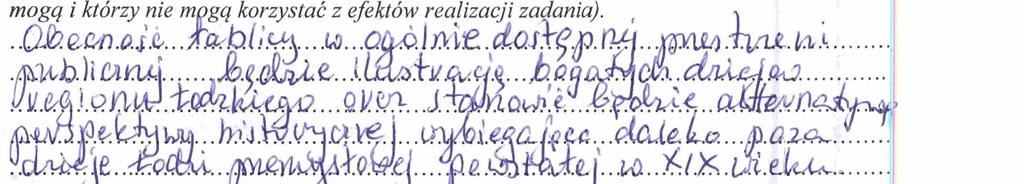 mogą i którzy nie mogą korzystać z efektów realizacji zadania).
Obecność tablicy w ogólnie dostępnej przestrzeni
publicznej będzie ilustracją bogatych dziejów
regionu łódzkiego oraz stanowić będzie alternatywę
perspektywy historycznej wybiegającą daleko poza
dzieje Łodzi przemysłowej powstałej w XIX wieku.